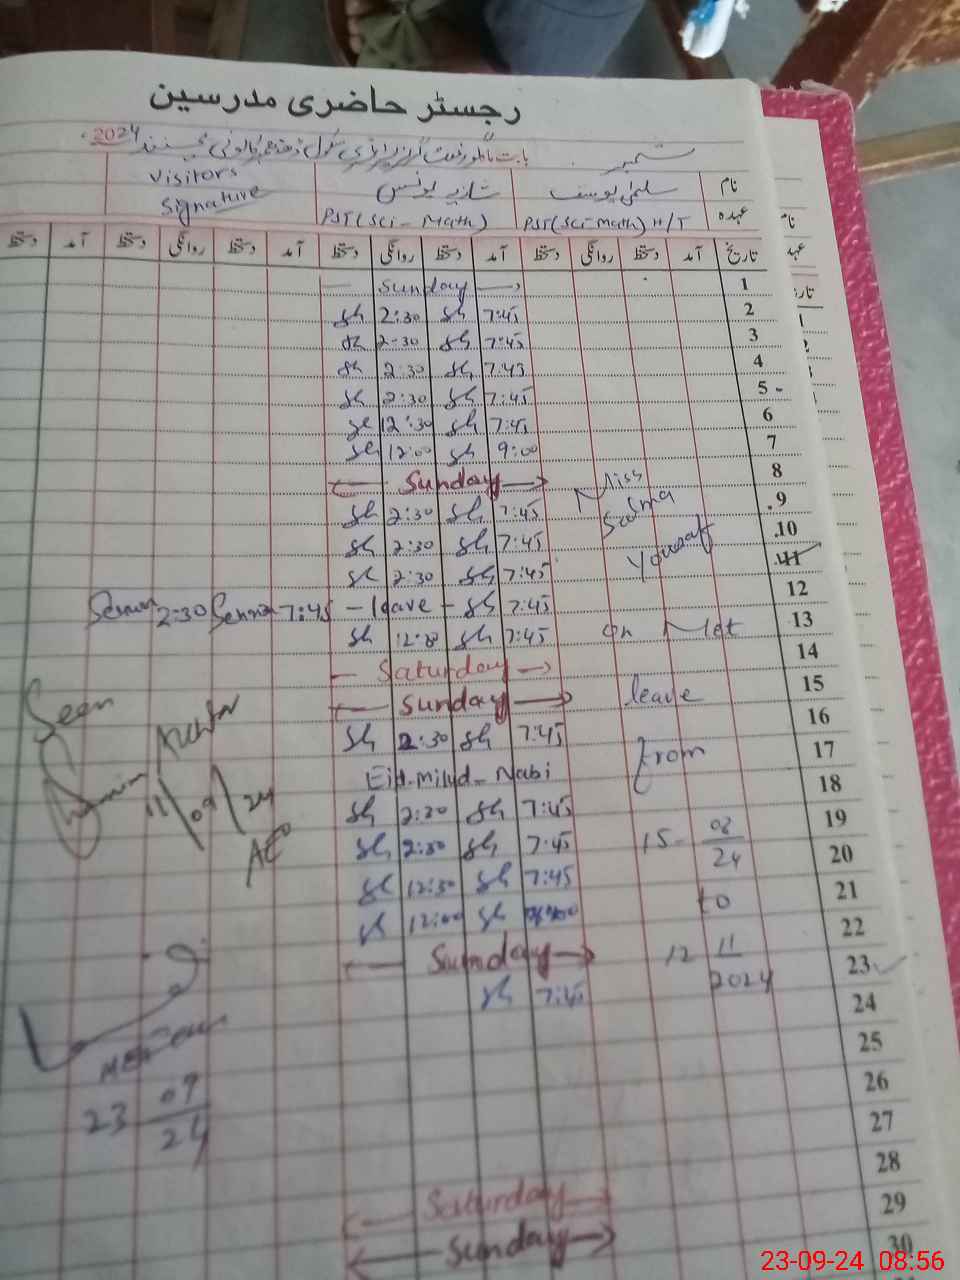 رجسٹر حاضری مدرسین
بابت ماہ ستمبر 2024
نام سلمیٰ یوسف شازیہ یونس Visitors
عہدہ PST(Sci-math) H/T PST(Sci-Math) Signature
تاریخ آمد دستخط روانگی دستخط آمد دستخط روانگی دستخط آمد دستخط روانگی دستخط آمد دستخط
1 Sunday
2 7:45 sh 2:30 sh
3 7:45 sh 2-30 sh
4 7:45 sh 2:30 sh
5 7:45 sh 2:30 sh
6 7:45 sh 12:30 sh
7 9:00 sh 12:00 sh
8 Sunday
9 7:45 sh 2:30 sh
10 7:45 sh 2:30 sh
11 7:45 sh 2:30 sh
12 7:45 sh - leave - 7:45 2:30
13 7:45 sh sh
14 Saturday
15 Sunday
16 7:45 sh 2:30 sh
17 Eid-milad-Nabi
18 7:45 sh 2:30 sh
19 7:45 sh 2:30 sh
20 7:45 sh 12:30 sh
21 sh 12:00 sh
22 Sunday
23 7:45 sh
24
25
26
27
28 Saturday
29 Sunday
30
Miss
Salma
Yousaf
on Mat
leave
from
15-08/24
to
12 11/2024
Seen
11/09/24
AEO
23 09/24
نام
عہد
تار
23-09-24 08:56